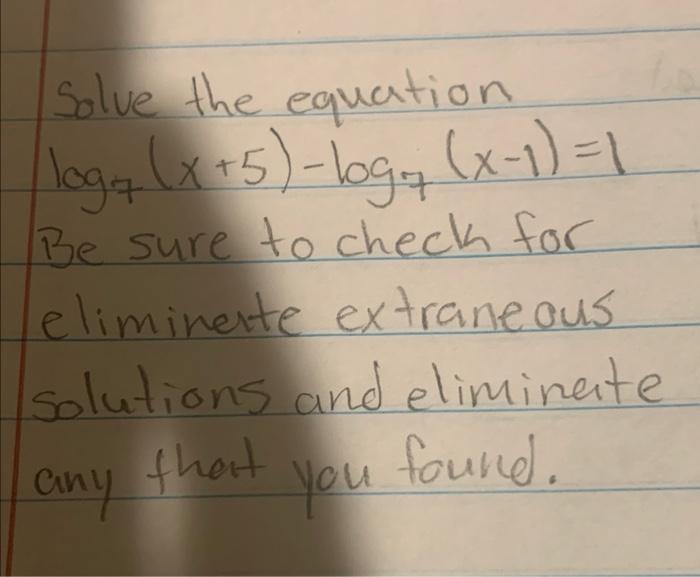 Solve the equation
log₇(x+5)-log₇(x-1)=1
Be sure to check for
eliminate extraneous
solutions and eliminate
any that you found.